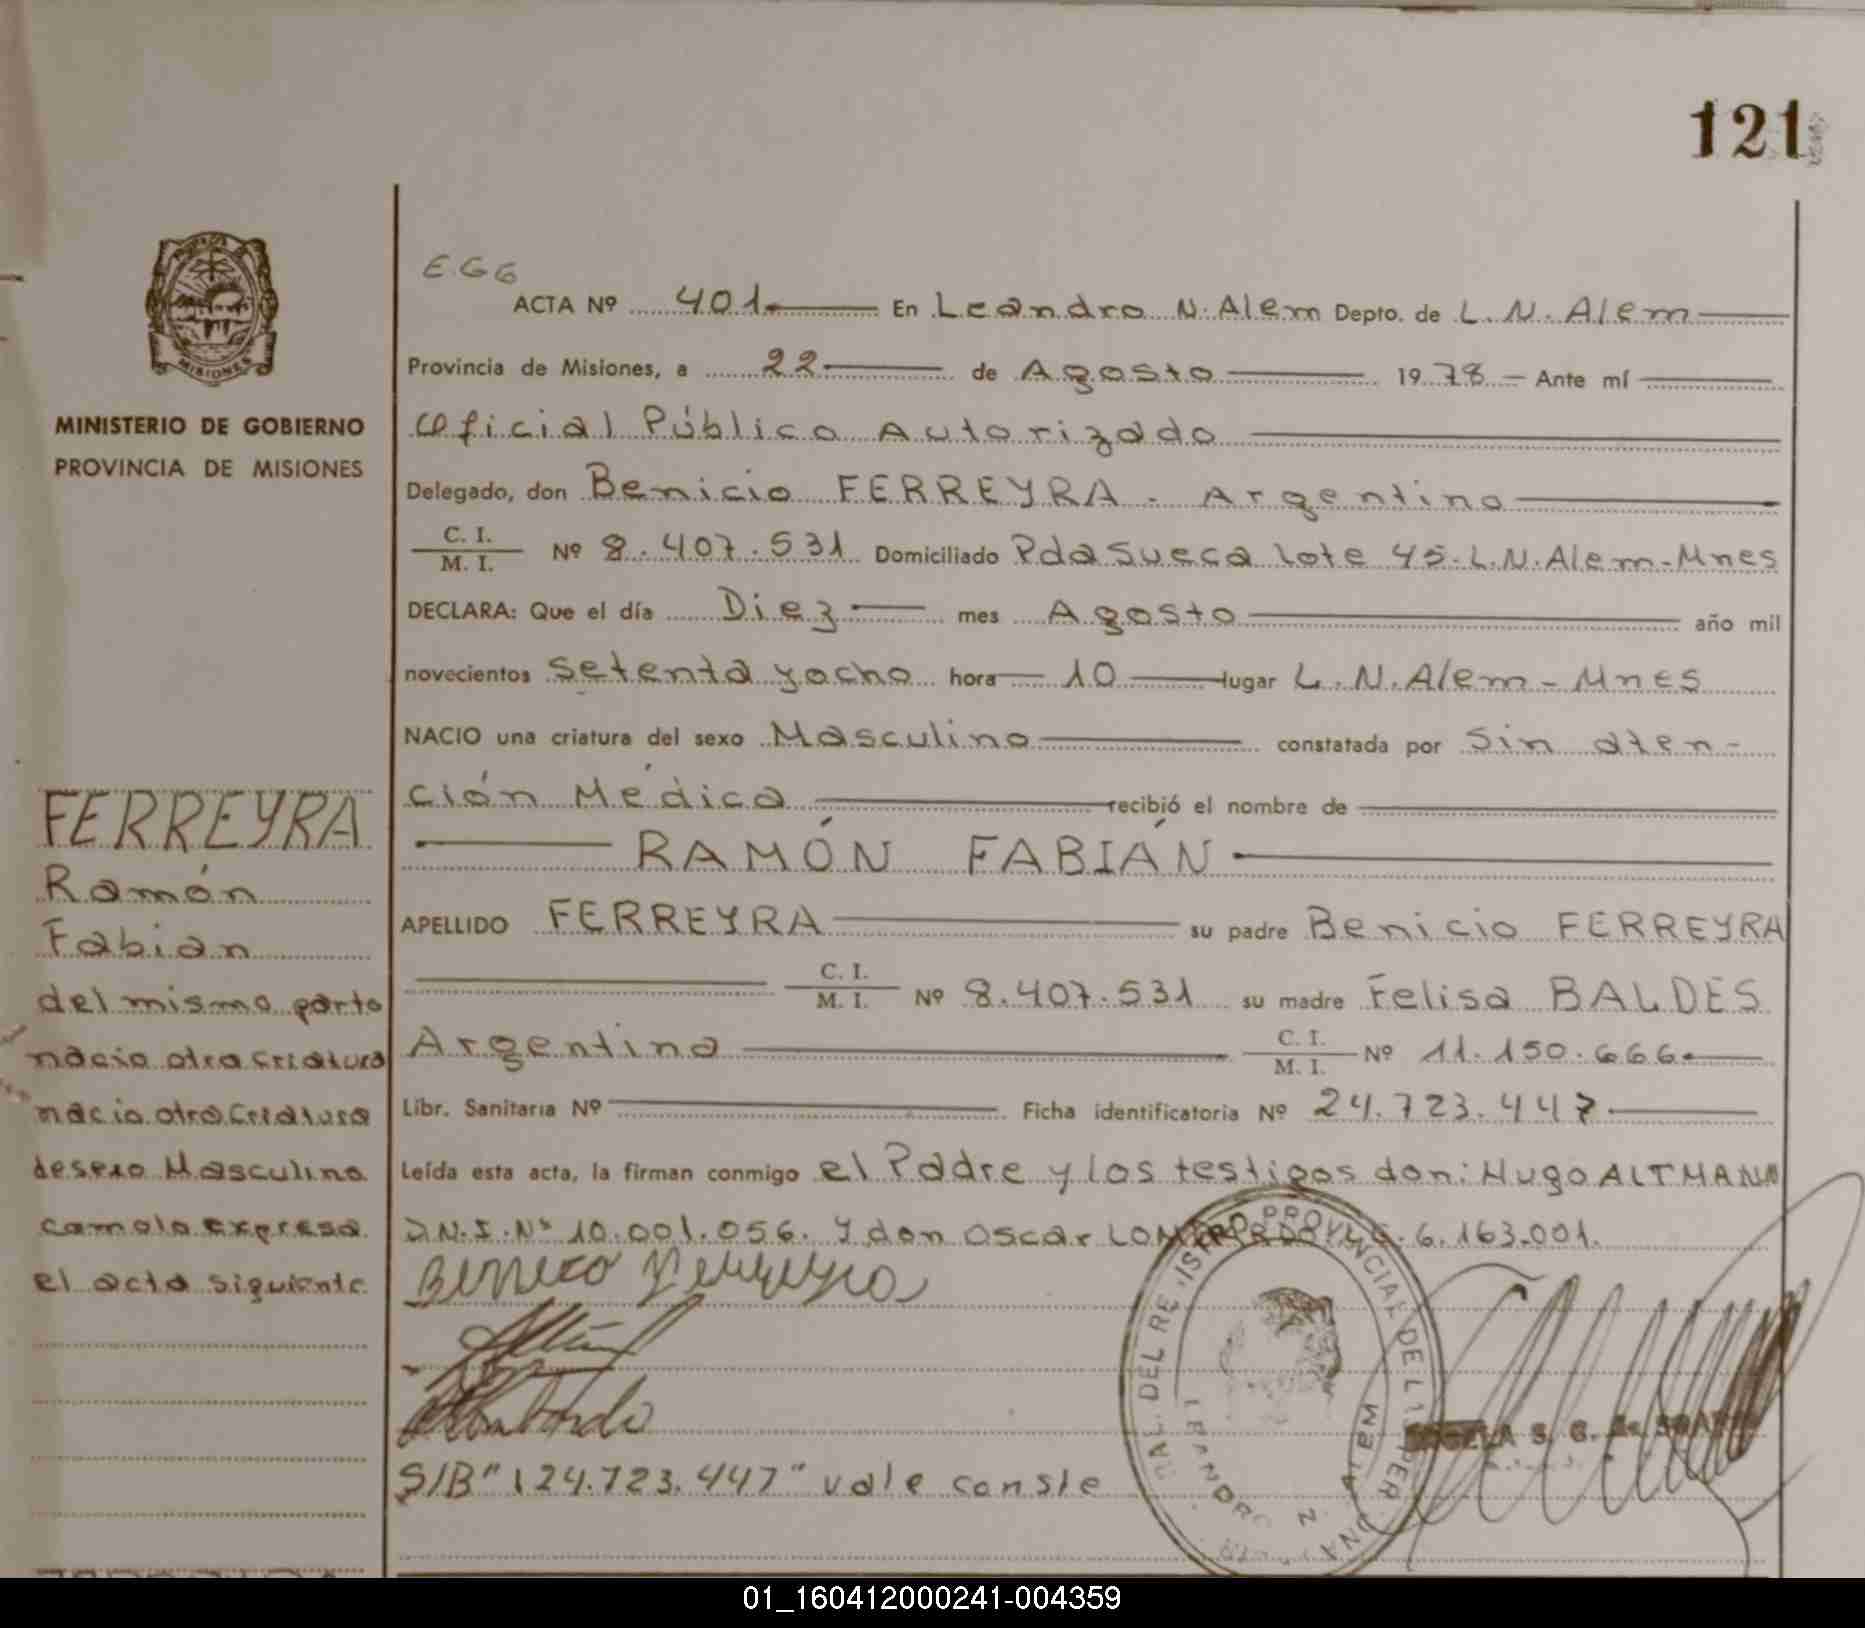 121
MISIONES
MINISTERIO DE GOBIERNO
PROVINCIA DE MISIONES
FERREYRA
Ramón
Fabian
del mismo parto
nacio otra criatura
nacio otra criatura
de sexo Masculino
como lo expresa
el acta siguiente
EGG
ACTA Nº 401 En Leandro N. Alem Depto. de L. N. Alem
Provincia de Misiones, a 22 de Agosto 1978 Ante mí
Oficial Público Autorizado
Delegado, don Benicio FERREYRA - Argentino
C. I.
M. I. Nº 8.407.531 Domiciliado Pda Sueca Lote 45. L.N. Alem - Mnes
DECLARA: Que el día Diez mes Agosto año mil
novecientos setenta y ocho hora 10 lugar L. N. Alem - Mnes
NACIO una criatura del sexo Masculino constatada por Sin aten-
ción Médica recibió el nombre de
RAMÓN FABIÁN
APELLIDO FERREYRA su padre Benicio FERREYRA
C. I.
M. I. Nº 8.407.531 su madre Felisa BALDES
Argentina C. I.
M. I. Nº 11.150.666
Libr. Sanitaria Nº Ficha identificatoria Nº 24.723.447
Leída esta acta, la firman conmigo el Padre y los testigos don: Hugo ALTMANN
D.N.I. Nº 10.001.056. y don Oscar LOMBARDO 6.163.001.
Benicio Ferreyra
S/B "124.723.447" vale conste
DEL PROVINCIAL DE
LEANDRO N. ALEM
S. G. de
01_160412000241-004359